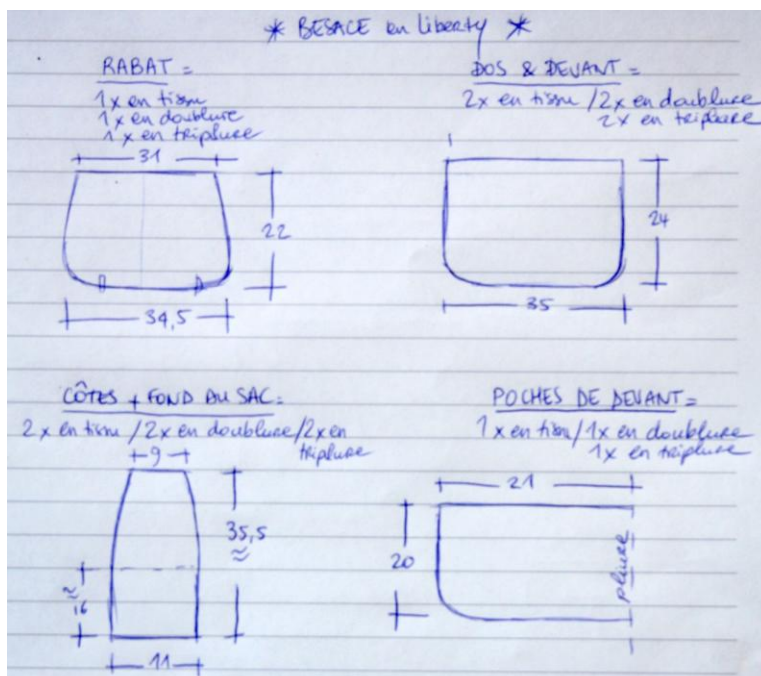 * BESACE en liberty *
RABAT =
1x en tissu
1x en doublure
1x en triplure
31
22
34,5
DOS & DEVANT =
2x en tissu / 2x en doublure
2x en triplure
24
35
CÔTES + FOND DU SAC =
2x en tissu / 2x en doublure / 2x en
triplure
9
35,5
≈
≈
16
11
POCHES DE DEVANT =
1x en tissu / 1x en doublure
1x en triplure
21
20
pliure